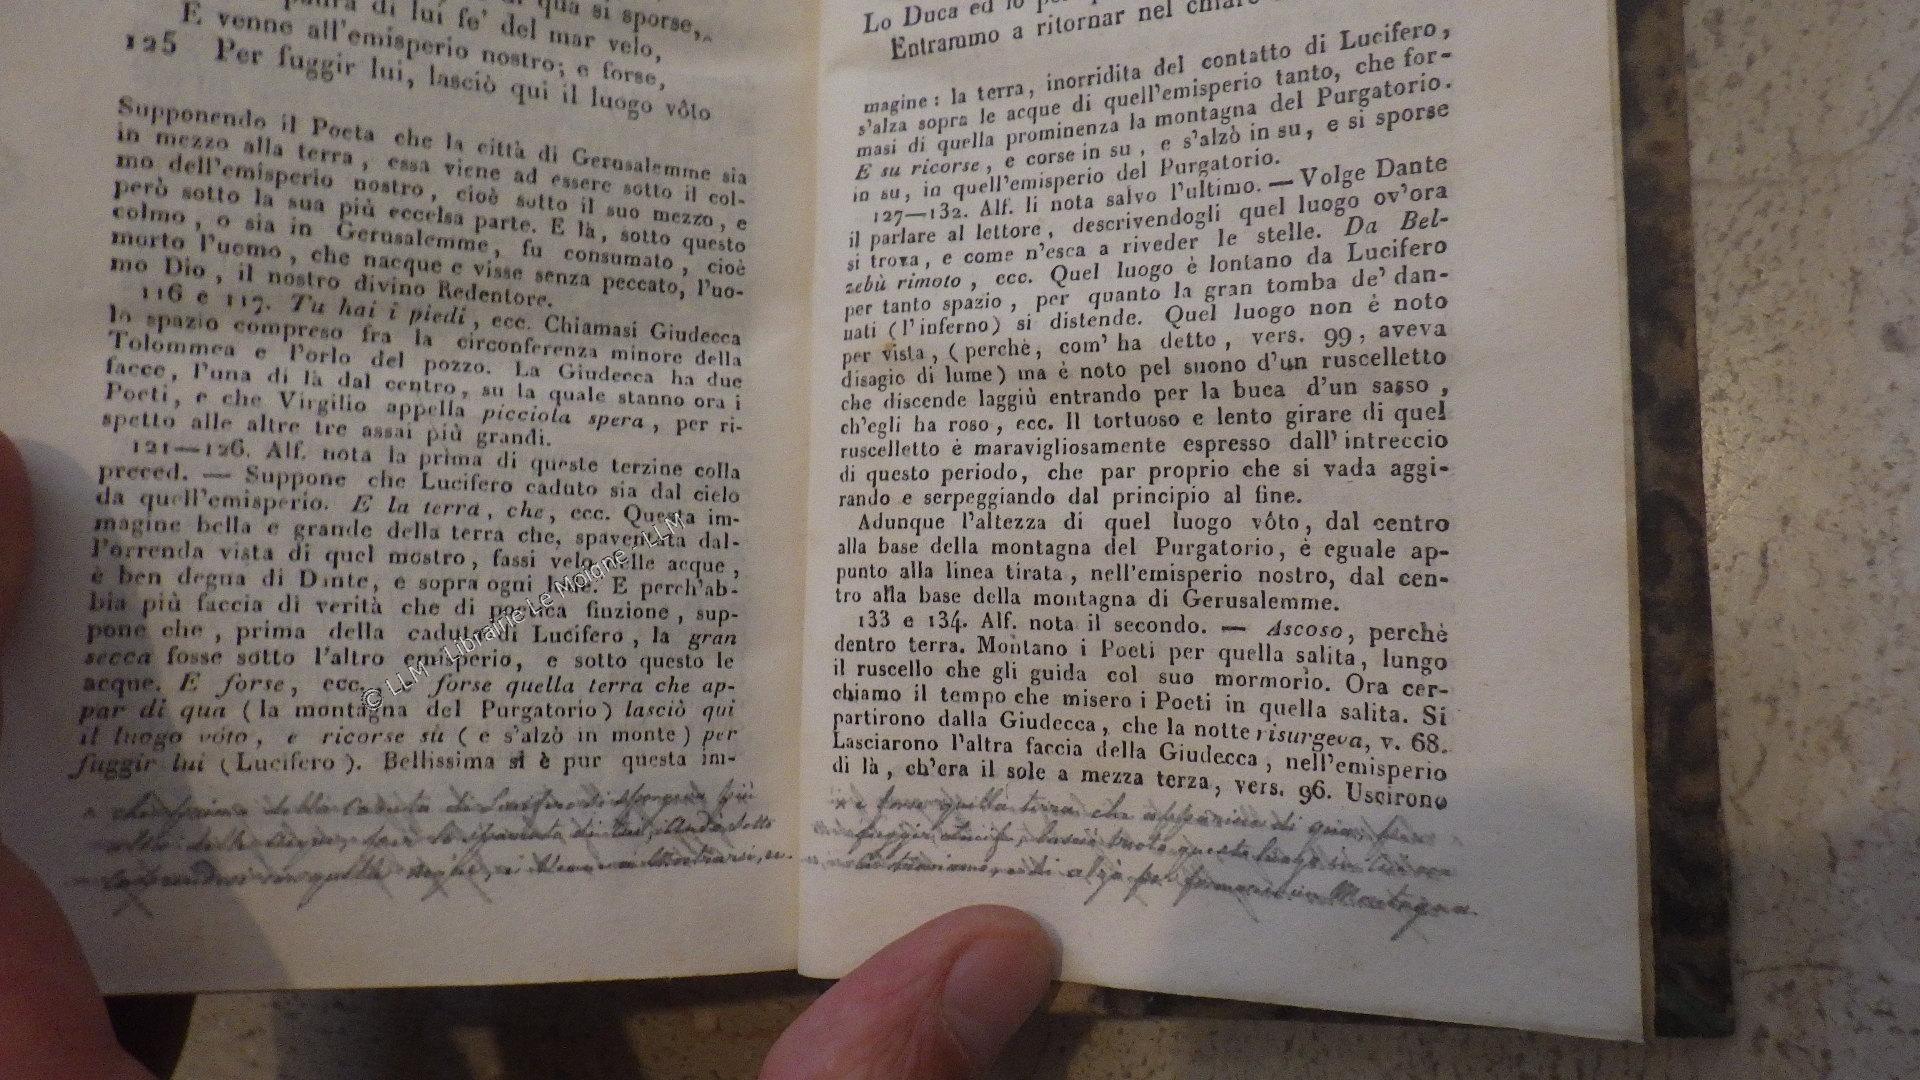 di qua si sporse,
paura di lui fe' del mar velo,
E venne all'emisperio nostro; e forse,
125 Per fuggir lui, lasciò qui il luogo vôto
Supponendo il Poeta che la città di Gerusalemme sia
in mezzo alla terra, essa viene ad essere sotto il col-
mo dell'emisperio nostro, cioè sotto il suo mezzo, e
però sotto la sua più eccelsa parte. E là, sotto questo
colmo, o sia in Gerusalemme, fu consumato, cioè
morto l'uomo, che nacque e visse senza peccato, l'uo-
mo Dio, il nostro divino Redentore.
116 e 117. Tu hai i piedi, ecc. Chiamasi Giudecca
lo spazio compreso fra la circonferenza minore della
Tolommea e l'orlo del pozzo. La Giudecca ha due
facce, l'una di là dal centro, su la quale stanno ora i
Poeti, e che Virgilio appella picciola spera, per ri-
spetto alle altre tre assai più grandi.
121—126. Alf. nota la prima di queste terzine colla
preced. — Suppone che Lucifero caduto sia dal cielo
da quell'emisperio. E la terra, che, ecc. Questa im-
magine bella e grande della terra che, spaventata dal-
l'orrenda vista di quel mostro, fassi velo delle acque,
è ben degna di Dante, e sopra ogni lode. E perch'ab-
bia più faccia di verità che di poetica finzione, sup-
pone che, prima della caduta di Lucifero, la gran
secca fosse sotto l'altro emisperio, e sotto questo le
acque. E forse, ecc. forse quella terra che ap-
par di qua (la montagna del Purgatorio) lasciò qui
il luogo vôto, e ricorse su (e s'alzò in monte) per
fuggir lui (Lucifero). Bellissima si è pur questa im-
che prima della caduta di Lucifero si sporgeva più
© LLM - Librairie Le Moigne - LLM
Lo Duca ed io
Entrammo a ritornar nel chiaro
magine: la terra, inorridita del contatto di Lucifero,
s'alza sopra le acque di quell'emisperio tanto, che for-
masi di quella prominenza la montagna del Purgatorio.
E su ricorse, e corse in su, e s'alzò in su, e si sporse
in su, in quell'emisperio del Purgatorio.
127—132. Alf. li nota salvo l'ultimo. — Volge Dante
il parlare al lettore, descrivendogli quel luogo ov'ora
si trova, e come n'esca a riveder le stelle. Da Bel-
zebù rimoto, ecc. Quel luogo è lontano da Lucifero
per tanto spazio, per quanto la gran tomba de' dan-
nati (l'inferno) si distende. Quel luogo non è noto
per vista, (perchè, com' ha detto, vers. 99, aveva
disagio di lume) ma è noto pel suono d'un ruscelletto
che discende laggiù entrando per la buca d'un sasso,
ch'egli ha roso, ecc. Il tortuoso e lento girare di quel
ruscelletto è maravigliosamente espresso dall'intreccio
di questo periodo, che par proprio che si vada aggi-
rando e serpeggiando dal principio al fine.
Adunque l'altezza di quel luogo vôto, dal centro
alla base della montagna del Purgatorio, è eguale ap-
punto alla linea tirata, nell'emisperio nostro, dal cen-
tro alla base della montagna di Gerusalemme.
133 e 134. Alf. nota il secondo. — Ascoso, perchè
dentro terra. Montano i Poeti per quella salita, lungo
il ruscello che gli guida col suo mormorio. Ora cer-
chiamo il tempo che misero i Poeti in quella salita. Si
partirono dalla Giudecca, che la notte risurgeva, v. 68.
Lasciarono l'altra faccia della Giudecca, nell'emisperio
di là, ch'era il sole a mezza terza, vers. 96. Uscirono
e forse quella terra che
lasciò questo luogo in